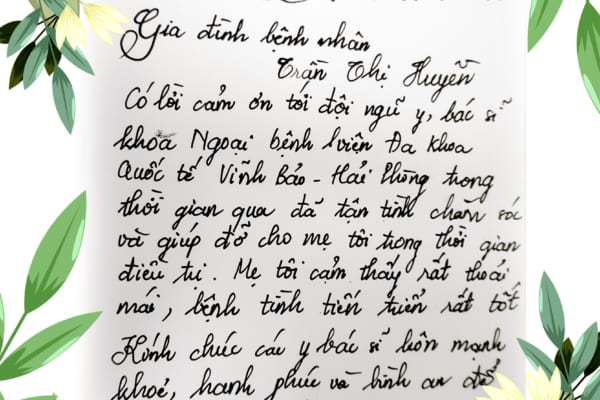 Gia đình bệnh nhân
Trần Thị Huyền
Có lời cảm ơn tới đội ngũ y, bác sĩ
khoa Ngoại bệnh viện Đa khoa
Quốc tế Vĩnh Bảo - Hải Phòng trong
thời gian qua đã tận tình chăm sóc
và giúp đỡ cho mẹ tôi trong thời gian
điều trị. Mẹ tôi cảm thấy rất thoải
mái, bệnh tình tiến triển rất tốt
Kính chúc các y bác sĩ luôn mạnh
khoẻ, hạnh phúc và bình an để